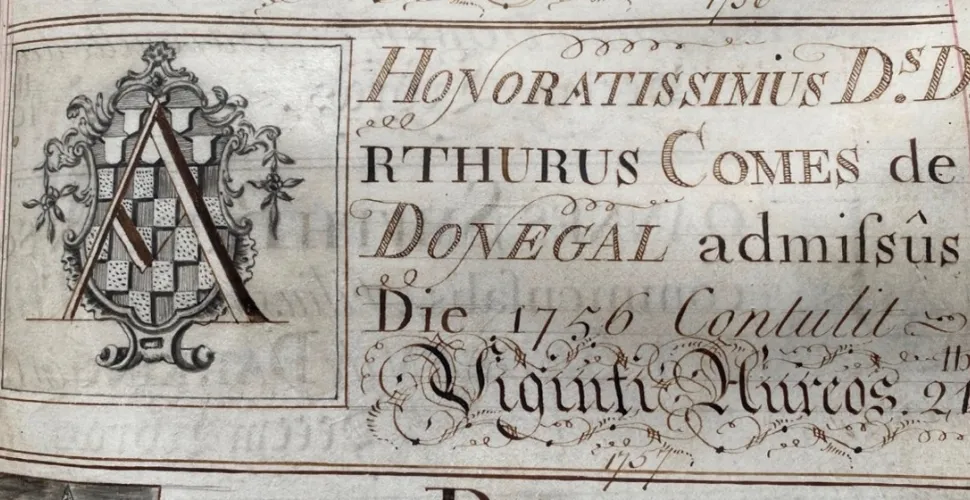 1756
A
HONORATISSIMUS D.s D
RTHURUS COMES de
DONEGAL admiſsûs
Die 1756 Contulit
Viginti Aureos. 21
1757